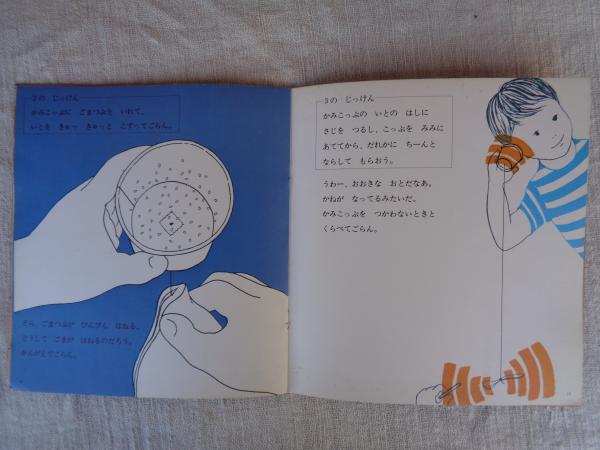 2の じっけん
かみこっぷに ごまつぶを いれて、
いとを きゅっ きゅっと こすってごらん。
そら、ごまつぶが ぴんぴん はねる。
どうして ごまが はねるのだろう。
かんがえてごらん。
3の じっけん
かみこっぷの いとの はしに
さじを つるし、こっぷを みみに
あててから、だれかに ちーんと
ならして もらおう。
うわー、おおきな おとだなあ。
かねが なってるみたいだ。
かみこっぷを つかわないときと
くらべてごらん。